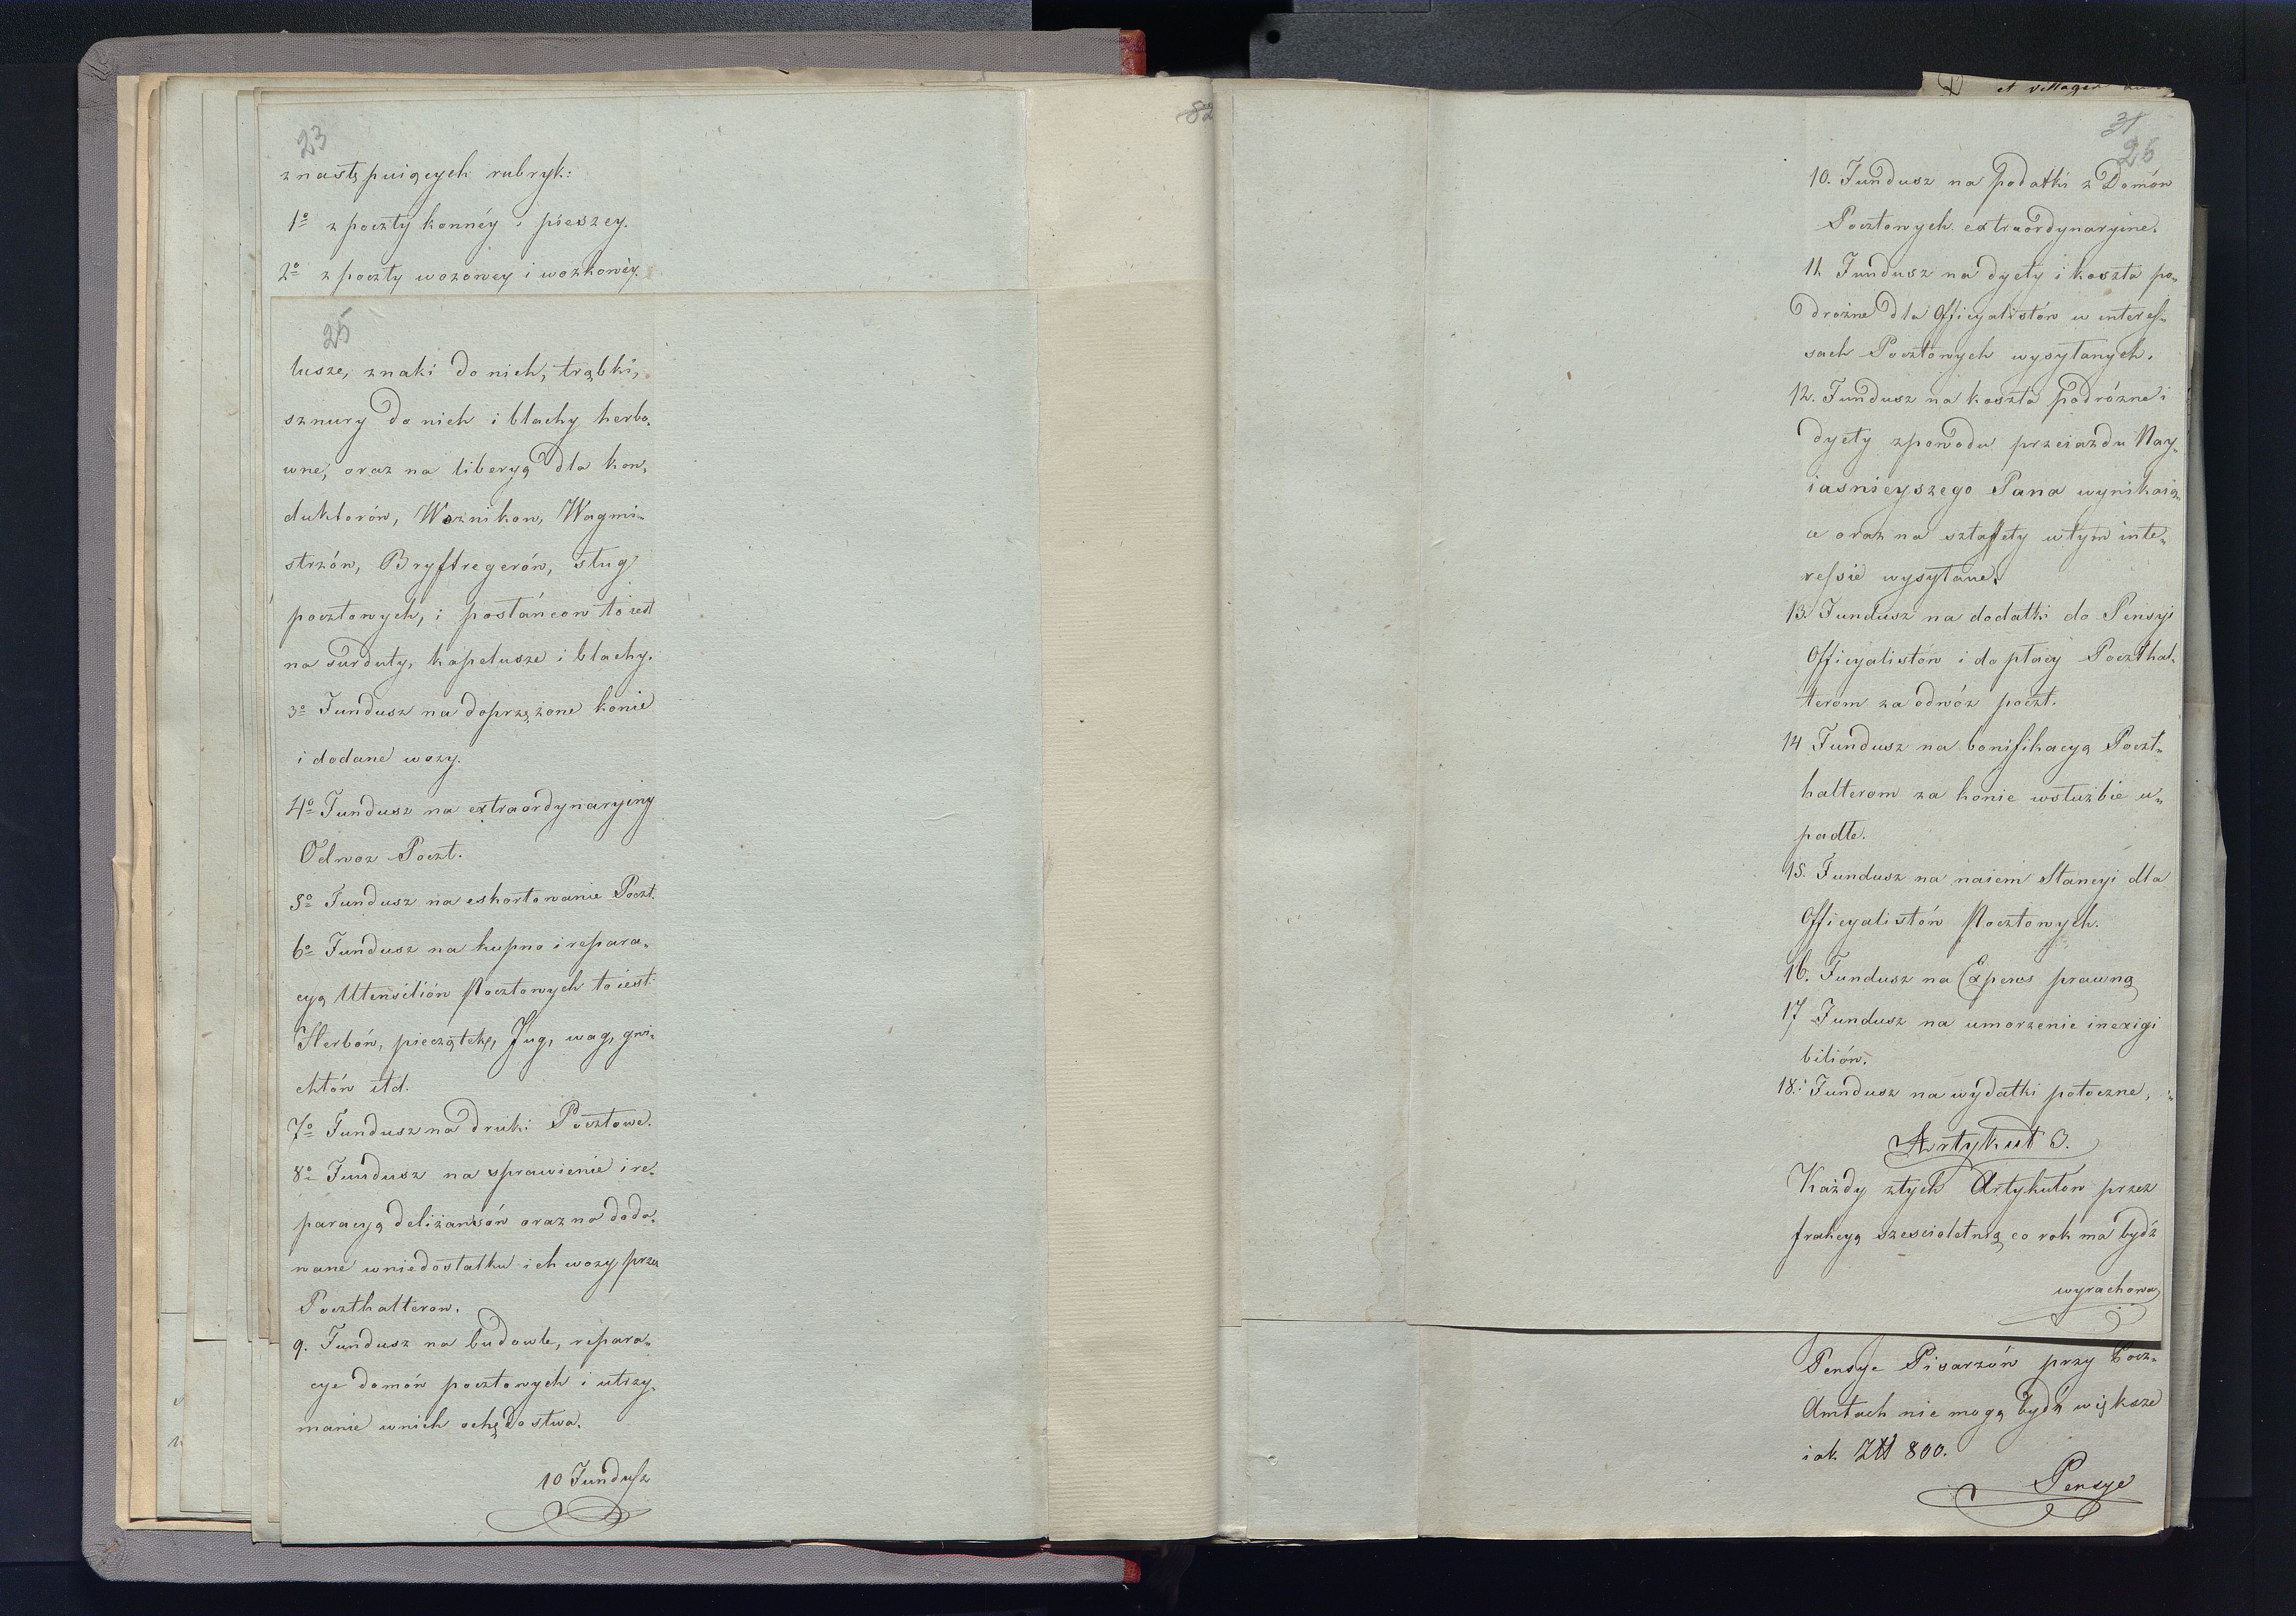 23
z następuiących rubryk:
1o z poczty konnéy i pieszey.
2o z poczty wozowey i wozkowéy.
25
lusze, znaki do nich, trąbki,
sznury do nich i blachy herbo,
wne, oraz na liberyą dla kon,
duktorów, Woznikow, Wagmi-
strzów, Bryftregerów, sług
pocztowych, i posłańcow to iest
na surduty, kapelusze i blachy.
3o Fundusz na doprzężone konie
i dodane wozy.
4o Fundusz na extraordynaryiny
Odwoz Poczt.
5o Fundusz na eskortowanie Poczt.
6o Fundusz na kupno i repara-
cyą Utensilión Pocztowych to iest:
Herbów, pieczątek, Fug, wag, gwi-
chtów itd.
7o Fundusz na druki Pocztowe.
8o Fundusz na sprawienie i re,
paracyą deliżansów oraz na doda,
wane w niedostatku ich wozy przez
Poczthalterow.
9. Fundusz na budowle, repara-
cye domów pocztowych i utrzy,
manie w nich ochędostwa.
10 Fundusz
82
et villages
31
26
10. Fundusz na podatki z Domów
Pocztowych extraordynaryine.
11. Fundusz na dyety i koszta po-
drożne dla Officyalistów w interes-
sach Pocztowych wysyłanych.
12. Fundusz na koszta podróżne i
dyety z powodu przeiazdu Nay-
iasnieyszego Pana wynikaią-
ce oraz na sztafety w tym inte-
ressie wysyłane.
13. Fundusz na dodatki do Pensyi
Officyalistów i do płacy Poczthal-
terom za odwóz poczt.
14 Fundusz na bonifikacyą Poczt-
halterom za konie w służbie u-
padłe.
15. Fundusz na naiem Stancyi dla
Officyalistów Pocztowych.
16. Fundusz na Expens prawną
17 Fundusz na umorzenie inexigi
bilión.
18. Fundusz na wydatki potoczne,
Artykuł 3.
Każdy z tych Artykułow przez
frakcyą sześcioletnią co rok ma bydź
wyrachowa
Pensye Pisarzów przy Pocz-
Amtach nie mogą bydź większe
iak Złł 800.
Pensye